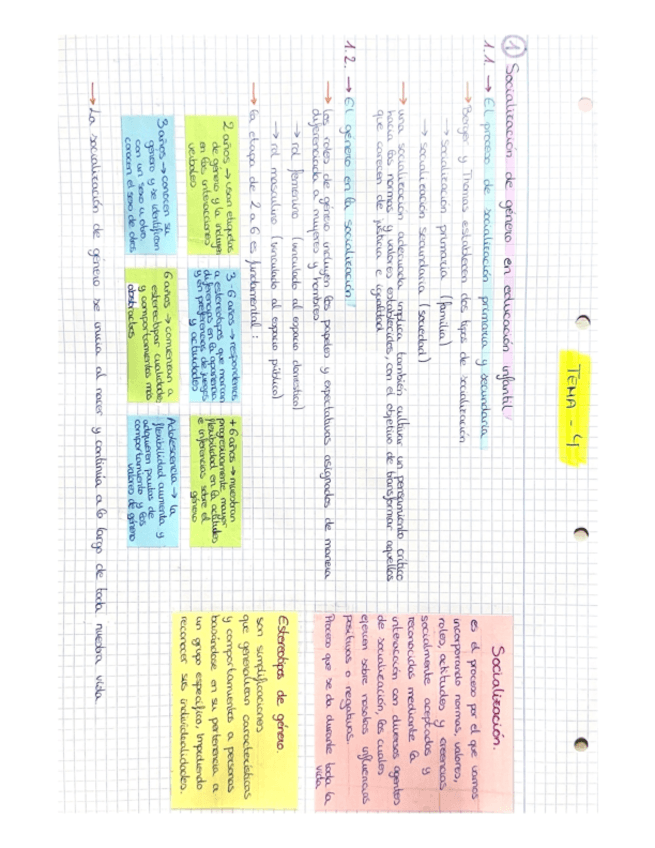 TEMA - 4
① Socialización de género en educación infantil
1.1. → El proceso de socialización primaria y secundaria
→ Berger y Thomas establecen dos tipos de socialización
→ socialización primaria (familia)
→ socialización secundaria (sociedad)
→ una socialización adecuada implica también cultivar un pensamiento crítico
hacia las normas y valores establecidos, con el objetivo de transformar aquellos
que carecen de justicia e igualdad
1.2. → El género en la socialización:
→ Los roles de género incluyen los papeles y expectativas asignados de manera
diferenciada a mujeres y hombres
→ rol femenino (vinculado al espacio doméstico)
→ rol masculino (vinculado al espacio público)
→ la etapa de 2 a 6 es fundamental:
2 años → usan etiquetas
de género y la incluyen
en las interacciones
verbales
3-6 años → responden
a estereotipos que marcan
diferencias en la apariencia
y en preferencias de juegos
y actividades
+6 años → muestran
progresivamente mayor
flexibilidad en la actitudes
e inferencias sobre el
género
3 años → conocen su
género y se identifican
con un sexo u otro
conocen el sexo de otros
6 años → comienzan a
estereotipar cualidades
y comportamientos más
abstractos
Adolescencia → la
flexibilidad aumenta y
adquieren pautas de
comportamiento y los
valores de género
→ La socialización de género se inicia al nacer y continúa a lo largo de toda nuestra vida
Socialización.
es el proceso por el que vamos
incorporando normas, valores,
roles, actitudes y creencias
socialmente aceptados y
reconocidos mediante la
interacción con diversos agentes
de socialización, los cuales
ejercen sobre nosotros influencias
positivas o negativas.
Proceso que se da durante toda la
vida
Estereotipos de género.
son simplificaciones
que generalizan características
y comportamientos a personas
basándose en su pertenencia a
un grupo específico, impidiendo
reconocer sus individualidades.